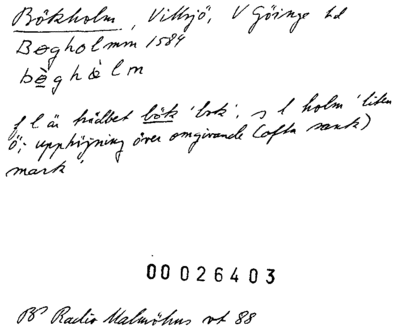 Bökholm, Vittsjö, V Göinge hd
Bogholmm 1584
bèghòlm
fl är trädbet bök 'bok', sl holm 'liten
ö; upphöjning över omgivande (ofta sank)
mark'
00026403
BP Radio Malmöhus vt 88